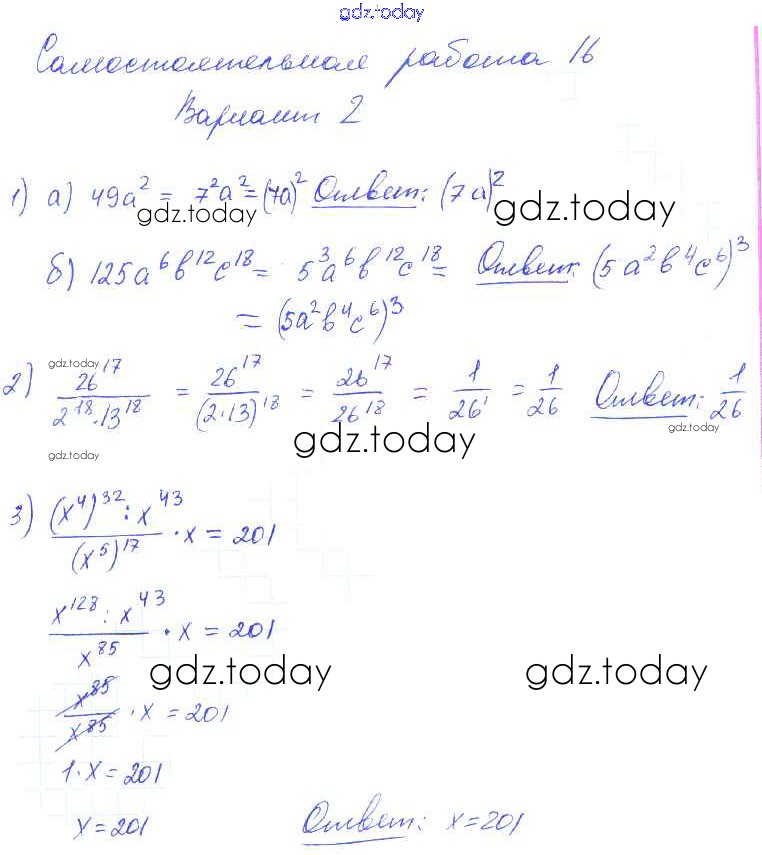 gdz.today
Самостоятельная работа 16
Вариант 2
1) а) 49a² = 7²a² = (7a)² Ответ: (7a)²
gdz.today gdz.today
б) 125a⁶b¹²c¹⁸ = 5³a⁶b¹²c¹⁸ = Ответ: (5a²b⁴c⁶)³
= (5a²b⁴c⁶)³
gdz.today
2) 26¹⁷/(2¹⁸·13¹⁸) = 26¹⁷/(2·13)¹⁸ = 26¹⁷/26¹⁸ = 1/26¹ = 1/26 Ответ: 1/26
gdz.today gdz.today gdz.today
3) ((x⁴)³² : x⁴³)/(x⁵)¹⁷ · x = 201
(x¹²⁸ : x⁴³)/x⁸⁵ · x = 201
gdz.today gdz.today
x⁸⁵/x⁸⁵ · x = 201
1·x = 201
x = 201 Ответ: x = 201